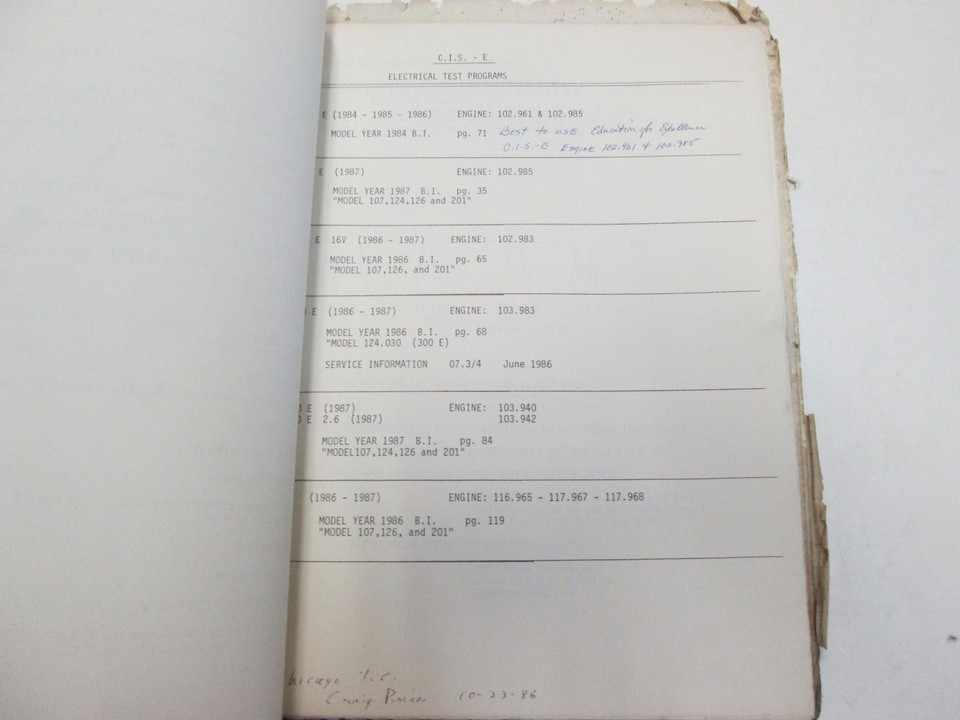 C.I.S. - E
ELECTRICAL TEST PROGRAMS
E (1984 - 1985 - 1986) ENGINE: 102.961 & 102.985
MODEL YEAR 1984 B.I. pg. 71 Best to use Education for Excellence
C.I.S-E Engine 102.961 & 102.985
E (1987) ENGINE: 102.985
MODEL YEAR 1987 B.I. pg. 35
"MODEL 107,124,126 and 201"
E 16V (1986 - 1987) ENGINE: 102.983
MODEL YEAR 1986 B.I. pg. 65
"MODEL 107,126, and 201"
E (1986 - 1987) ENGINE: 103.983
MODEL YEAR 1986 B.I. pg. 68
"MODEL 124.030 (300 E)
SERVICE INFORMATION 07.3/4 June 1986
E (1987) ENGINE: 103.940
E 2.6 (1987) 103.942
MODEL YEAR 1987 B.I. pg. 84
"MODEL107,124,126 and 201"
(1986 - 1987) ENGINE: 116.965 - 117.967 - 117.968
MODEL YEAR 1986 B.I. pg. 119
"MODEL 107,126, and 201"
hicago T.C.
Craig 10-23-86